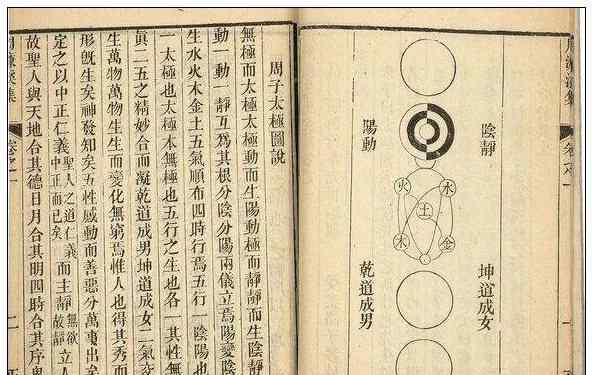 陰靜
陽動
水
火
土
金
木
坤道成女
乾道成男
周子太極圖說
無極而太極太極動而生陽動極而靜靜而生陰靜
動一動一靜互為其根分陰分陽兩儀立焉陽變陰
生水火木金土五氣順布四時行焉五行一陰陽也
一太極也太極本無極也五行之生也各一其性無
眞二五之精妙合而凝乾道成男坤道成女二氣交
生萬物萬物生生而變化無窮焉惟人也得其秀而
形旣生矣神發知矣五性感動而善惡分萬事出矣
定之以中正仁義聖人之道仁義中正而已矣而主靜無欲故靜立人
故聖人與天地合其德日月合其明四時合其序
周濂溪集 卷之一 二